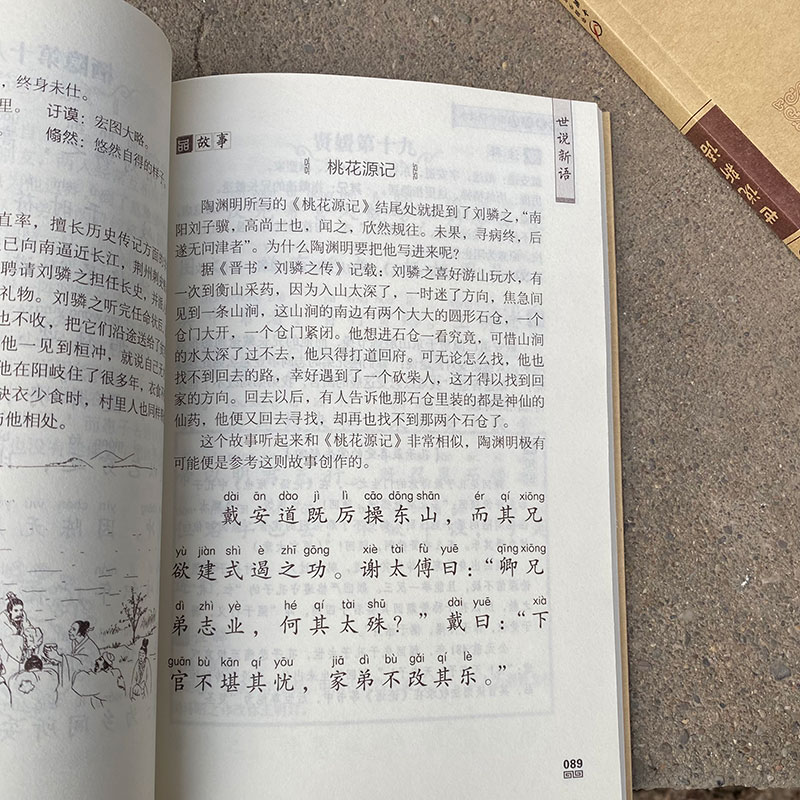 ，终身未仕。
里。 讦谟：宏图大略。
翛然：悠然自得的样子。
直率，擅长历史传记方面
已向南逼近长江，荆州刺
聘请刘驎之担任长史，并
礼物。刘驎之听完任命状后
也不收，把它们沿途送给了
他一见到桓冲，就说自己
他在阳岐住了很多年，衣食
缺衣少食时，村里人也同样
与他相处。
品 故事
桃花源记
陶渊明所写的《桃花源记》结尾处就提到了刘驎之，“南
阳刘子骥，高尚士也，闻之，欣然规往。未果，寻病终，后
遂无问津者”。为什么陶渊明要把他写进来呢？
据《晋书·刘驎之传》记载：刘驎之喜好游山玩水，有
一次到衡山采药，因为入山太深了，一时迷了方向，焦急间
见到一条山涧，这山涧的南边有两个大大的圆形石仓，一个
仓门大开，一个仓门紧闭。他想进石仓一看究竟，可惜山涧
的水太深了过不去，他只得打道回府。可无论怎么找，他也
找不到回去的路，幸好遇到了一个砍柴人，这才得以找到回
家的方向。回去以后，有人告诉他那石仓里装的都是神仙的
仙药，他便又回去寻找，却再也找不到那两个石仓了。
这个故事听起来和《桃花源记》非常相似，陶渊明极有
可能便是参考这则故事创作的。
dài ān dào jì lì cāo dōng shān ér qí xiōng
戴安道既厉操东山，而其兄
yù jiàn shì è zhī gōng xiè tài fù yuē qīng xiōng
欲建式遏之功。谢太傅曰：“卿兄
dì zhì yè hé qí tài shū dài yuē xià
弟志业，何其太殊？”戴曰：“下
guān bù kān qí yōu jiā dì bù gǎi qí lè
官不堪其忧，家弟不改其乐。”
世说新语
089
世说新语